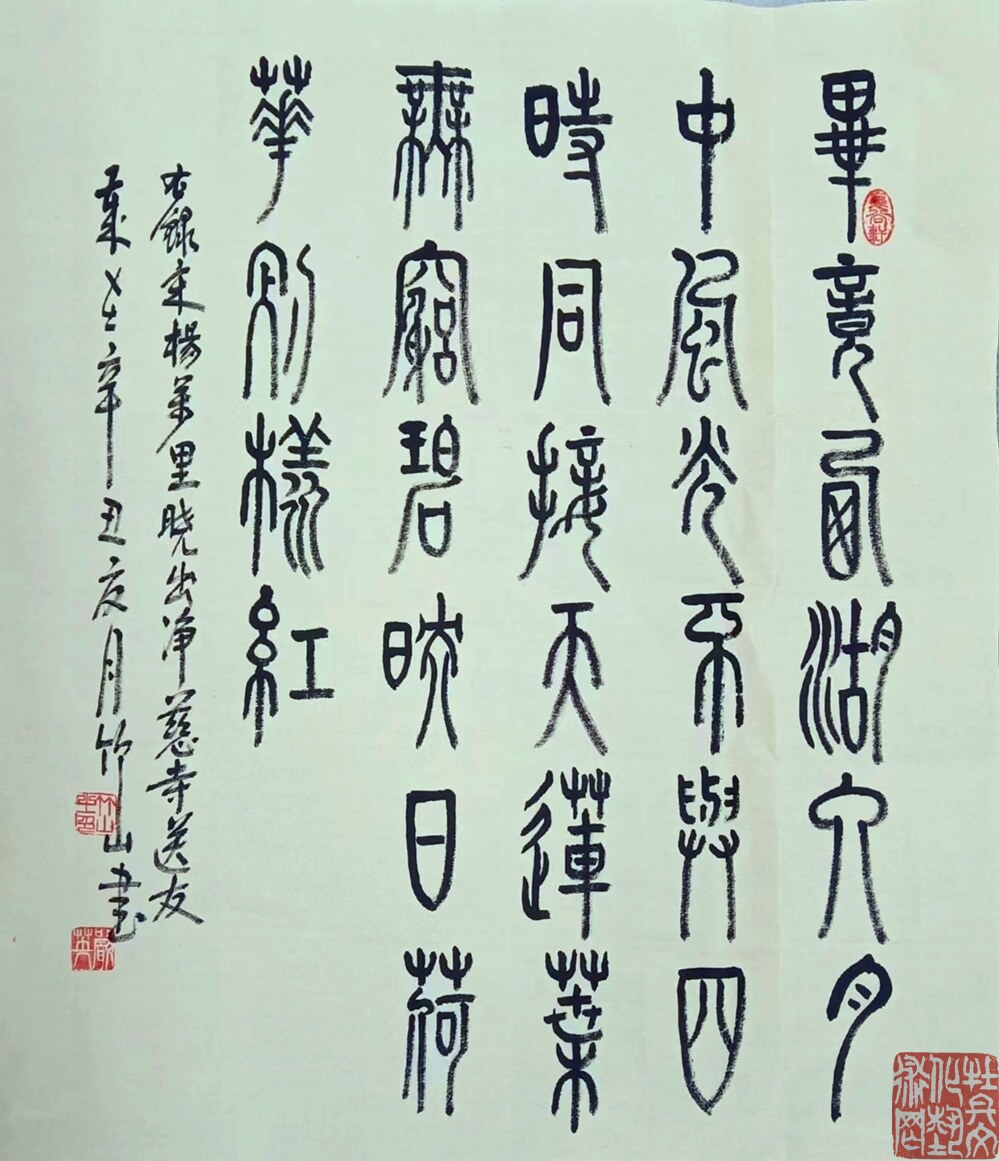 畢竟西湖六月
中風光不與四
時同接天蓮葉
無窮碧映日荷
華別樣紅
右錄宋楊萬里晓出净慈寺送友
歲在辛丑夏月竹山書